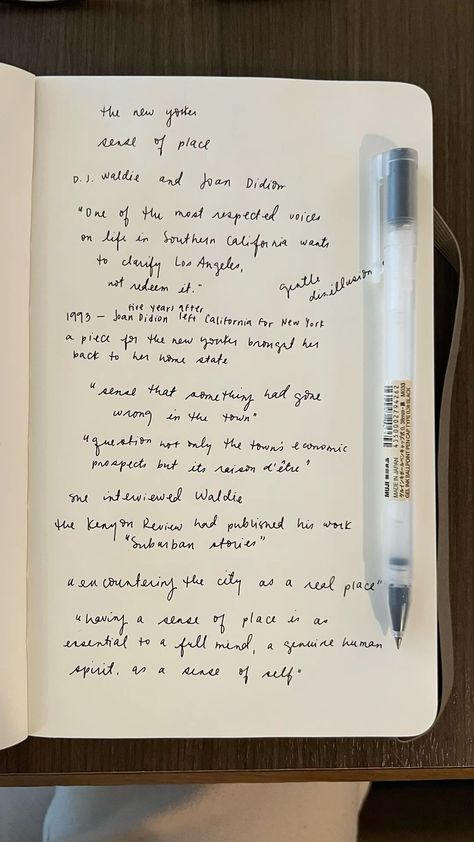 the new yorker
sense of place
D.J. Waldie and Joan Didion
"One of the most respected voices
on life in Southern California wants
to clarify Los Angeles,
not redeem it."
gentle
disillusion
five years after
1993 – Joan Didion left California for New York
a piece for the new yorker brought her
back to her home state
"sense that something had gone
wrong in the town"
"question not only the town's economic
prospects but its raison d'être"
she interviewed Waldie
the Kenyon Review had published his work
"Suburban stories"
"encountering the city as a real place"
"having a sense of place is as
essential to a full mind, a genuine human
spirit, as a sense of self"
MUJ 無印良品
MADE IN JAPAN
GEL INK BALLPOINT PEN CAP TYPE 0.38 BLACK
4550002794262